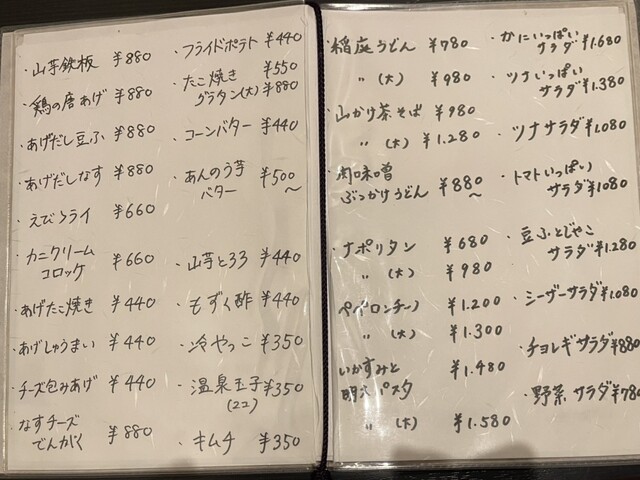 ・山芋鉄板 ¥880
・鶏の唐あげ ¥880
・あげだし豆ふ ¥880
・あげだしなす ¥880
・えびフライ ¥660
・カニクリーム
コロッケ ¥660
・あげたこ焼き ¥440
・あげしゅうまい ¥440
・チーズ包みあげ ¥440
・なすチーズ
でんがく ¥880
・フライドポテト ¥440
・たこ焼き ¥550
グラタン(大) ¥880
・コーンバター ¥440
・あんのう芋
バター ¥500～
・山芋とろろ ¥440
・もずく酢 ¥440
・冷やっこ ¥350
・温泉玉子 ¥350
(2コ)
・キムチ ¥350
・稲庭うどん ¥780
〃 (大) ¥980
・山かけ茶そば ¥980
〃 (大) ¥1.280
・肉味噌
ぶっかけうどん ¥880～
・ナポリタン ¥680
〃 (大) ¥980
ペペロンチーノ ¥1.200
〃 (大) ¥1.300
いかすみと
明太パスタ ¥1.480
〃 (大) ¥1.580
・かにいっぱい
サラダ ¥1.680
・ツナいっぱい
サラダ ¥1.380
・ツナサラダ ¥1.080
・トマトいっぱい
サラダ ¥1080
・豆ふとじゃこ
サラダ ¥1.280
・シーザーサラダ ¥1.080
・チョレギサラダ ¥880
・野菜サラダ ¥780